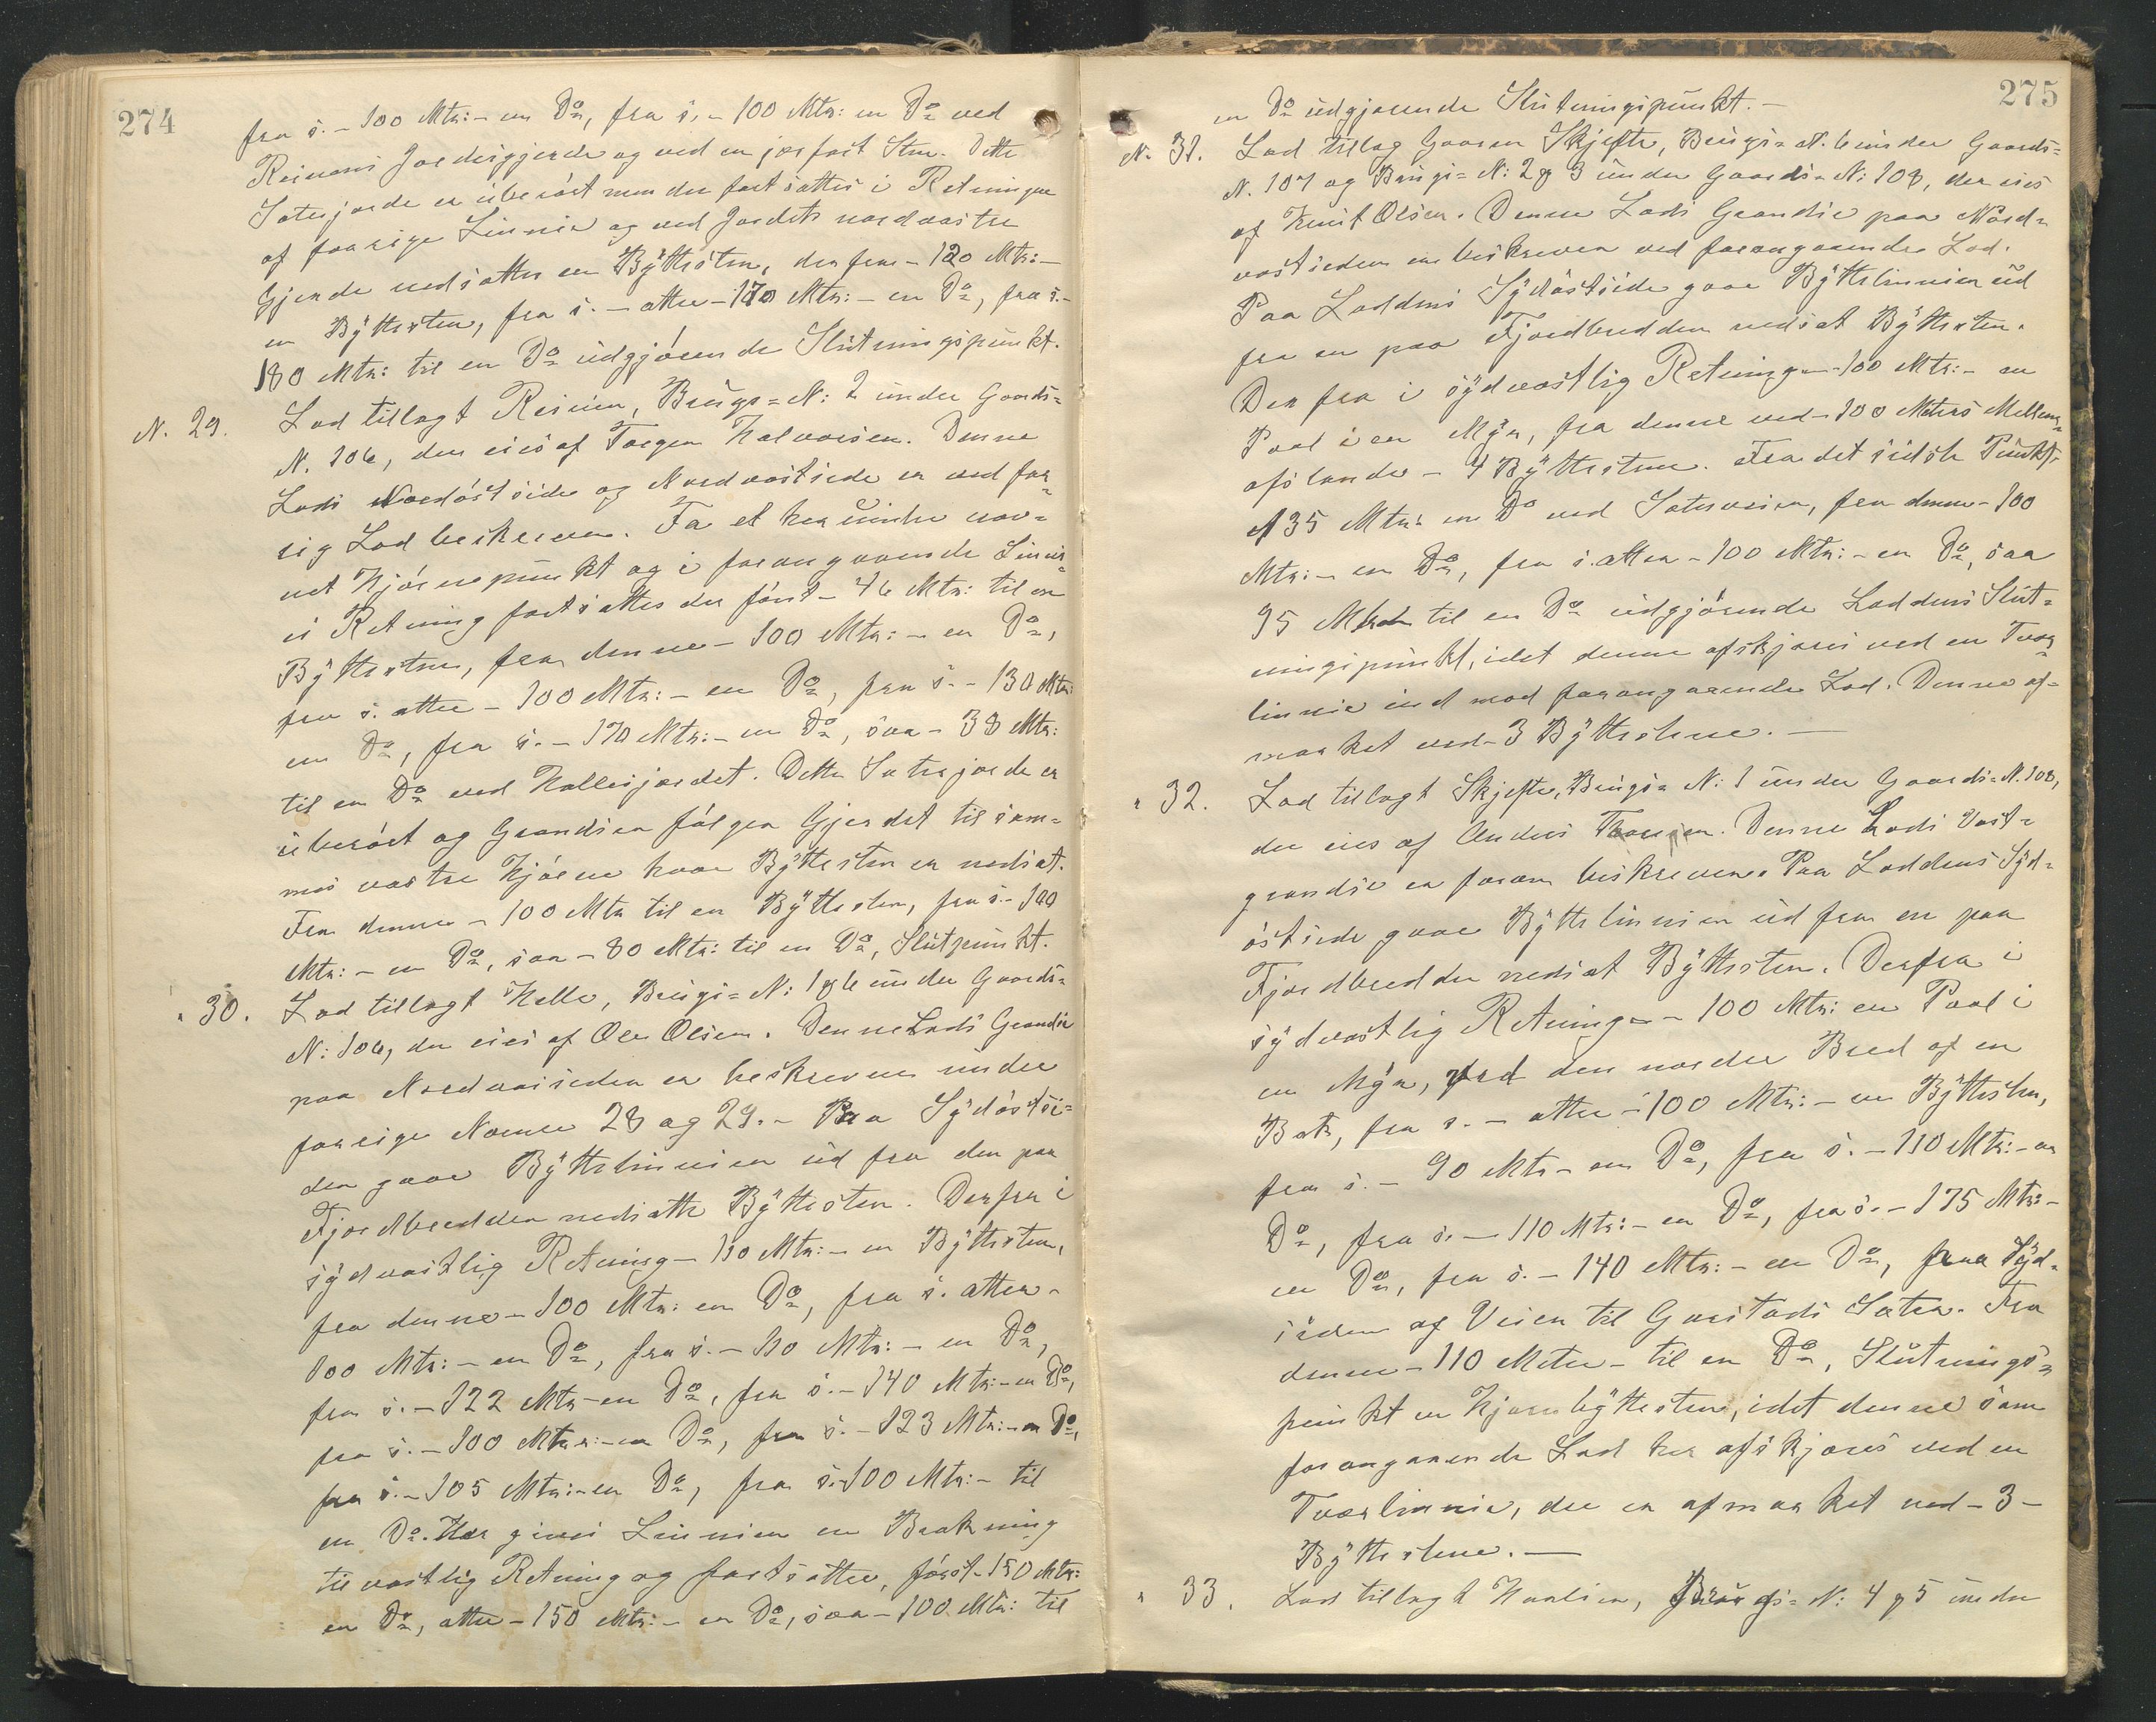 274
fra s. - 100 Mtr: - en Do, fra s. - 100 Mtr: en Do ved
Reinens Jordesgjerde og ved en jorfast Sten. Dette
Seterjorde er uberört men der fortsættes i Retningen
af forrige Linnie og ved Jordets nordvestre
Gjerde nedsættes en Bÿttesten, derfra - 120 Mtr: -
en Bÿttesten, fra s. - atter - 170 Mtr: - en Do, fra s. -
180 Mtr: til en Do udgjörende Slutningspunkt.
N. 29. Lod tillagt Reinen, Brugs=N: 2 under Gaards=
N. 106, der eies af Torger Halvorsen. Denne
Lods Nordöstside og Nordvestside er ved for=
rig Lod beskreven. Fra et her under nev=
net Hjörnepunkt og i forangaaende Linni=
es Retning fortsættes der först - 46 Mtr: til en
Bÿttesten, fra denne - 100 Mtr: - en Do,
fra s. atter - 100 Mtr: - en Do, fra s. - 130 Mtr:
en Do, fra s. - 170 Mtr: - en Do, saa - 38 Mtr:
til en Do ved Hallesjordet. Dette Seterjorde er
uberört og Grændsen fölger Gjerdet til sam=
mes vestre Hjörne hvor Bÿttesten er nedsat.
Fra denne - 100 Mtr til en Bÿttesten, fra s. - 100
Mtr: - en Do, saa - 80 Mtr: til en Do, Slutpunkt.
" 30. Lod tillagt Halle, Brugs=N: 1 & 6 under Gaards=
N: 106, der eies af Ole Olsen. Denne Lods Grændse
paa Nordvessiden er beskreven under
forrige Nomre 28 og 29. - Paa Sÿdöstsi=
den gaar Bÿttelinnien ud fra den paa
Fjordbredden nedsatte Bÿttesten. Derfra i
sÿdvestlig Retning - 110 Mtr: - en Bÿttesten,
fra denne - 100 Mtr: en Do, fra s. atter -
100 Mtr: - en Do, fra s. - 110 Mtr: - en Do,
fra s. - 122 Mtr - en Do, fra s. - 140 Mtr: - en Do,
fra s. - 100 Mtr: - en Do, fra s. - 123 Mtr: - en Do,
fra s. - 105 Mtr: - en Do, fra s. - 100 Mtr: - til
en Do. Her gives Linnien en Brekning
til vestlig Retning og fortsætter, först - 150 Mtr:
en Do, atter - 150 Mtr: - en Do, saa - 100 Mtr: til
275
en Do udgjörende Slutningspunkt. -
N. 31. Lod tillag Gaaren Skjefte, Brugs=N. 6 under Gaards=
N. 107 og Brugs=N: 2 & 3 under Gaards=N: 108, der eies
af Knut Olsen. Denne Lods Grændse paa Nord=
vestsieden er beskreven ved forangaaende Lod.
Paa Loddens Sÿdöstside gaar Bÿttelinnien ud
fra en paa Fjordbredden nedsat Bÿttesten.
Derfra i sÿdvestlig Retning - 100 Mtr: - en
Pæl i en Mÿr, fra denne ved - 100 Meters Mellem=
afstande - 4 Bÿttestene. Fra det sidste Punkt -
135 Mtr: en Do ved Seterveien, fra denne - 100
Mtr: - en Do, fra s. atter - 100 Mtr: - en Do, saa
95 Meter til en Do udgjörende Loddens Slut=
ningspunkt, idet denne afskjæres ved en Tver=
linnie ind mod forangaaende Lod. Denne af=
mærket ved - 3 Bÿttestene. -
" 32. Lod tillagt Skjefte, Brugs=N: 1 under Gaards=N. 108,
der eies af Anders Thoresen. Denne Lods Vest=
grændse er foran beskreven. Paa Loddens Sÿd=
östside gaar Bÿttelinnien ud fra en paa
Fjordbredden nedsat Bÿttesten. Derfra i
sÿdvestlig Retning - 100 Mtr: en Pæl i
en Mÿr, ved den nordre Bred af en
Bæk, fra s. - atter - 100 Mtr: - en Bÿttesten,
fra s. - 90 Mtr - en Do, fra s. - 110 Mtr: - en
Do, fra s. - 110 Mtr: - en Do, fra s. - 175 Mtr: -
en Do, fra s. - 140 Mtr: - en Do, paa Sÿd=
siden af Veien til Gaustads Sæter. Fra
denne - 110 Meter - til en Do, Slutnings=
punkt er Hjørnebÿttesten, idet denne som
forangaaende Lod her afskjæres ved en
Tverlinnie, der er afmærket ved - 3 -
Bÿttestene. -
" 33. Lod tillagt Haalien, Brugs=N: 4 & 5 under